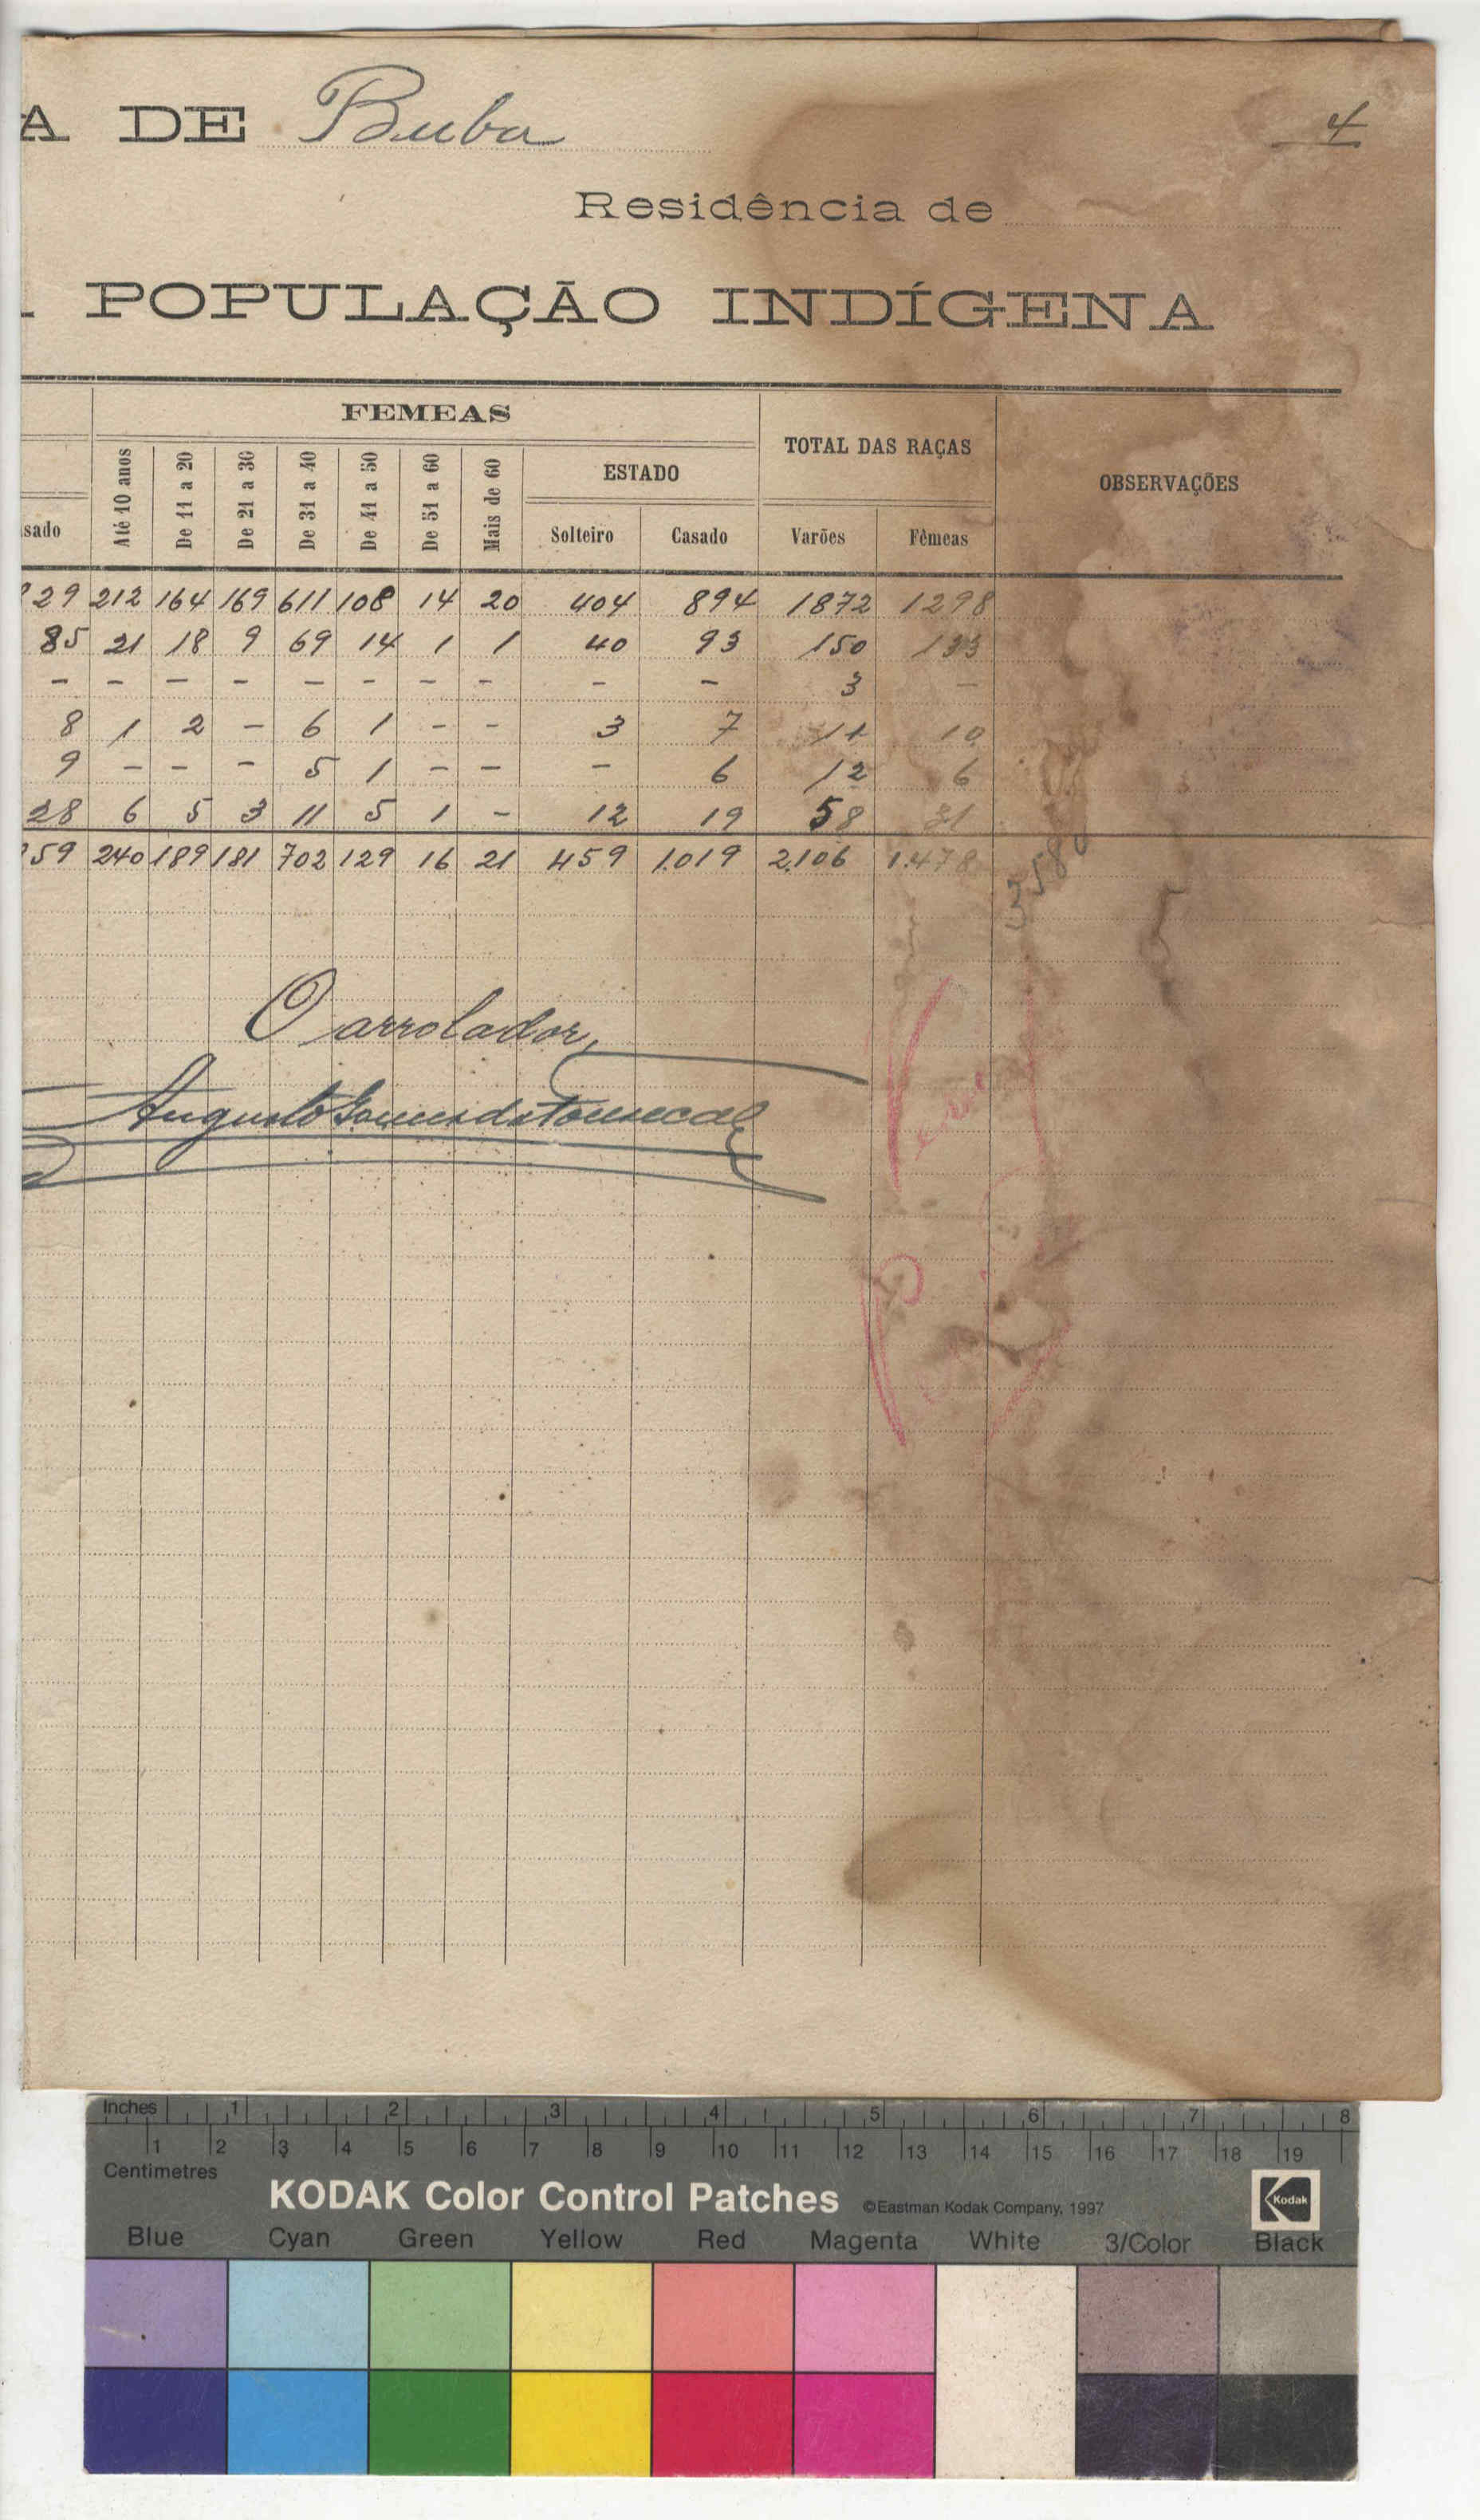 A DE Buba
4
Residência de
POPULAÇÃO INDÍGENA
FEMEAS
TOTAL DAS RAÇAS
OBSERVAÇÕES
sado Até 10 anos De 11 a 20 De 21 a 30 De 31 a 40 De 41 a 50 De 51 a 60 Mais de 60 ESTADO
Solteiro Casado Varões Fêmeas
29 212 164 169 611 108 14 20 404 894 1872 1298
85 21 18 9 69 14 1 1 40 93 150 133
- - - - - - - - - - 3 -
8 1 2 - 6 1 - - 3 7 11 10
9 - - - 5 1 - - - 6 12 6
28 6 5 3 11 5 1 - 12 19 58 31
59 240 189 181 702 129 16 21 459 1.019 2.106 1.478
O arrolador,
Augusto Gomes da Fonseca
Inches 1 2 3 4 5 6 7 8
1 2 3 4 5 6 7 8 9 10 11 12 13 14 15 16 17 18 19
Centimetres
KODAK Color Control Patches ©Eastman Kodak Company, 1997 Kodak
Blue Cyan Green Yellow Red Magenta White 3/Color Black